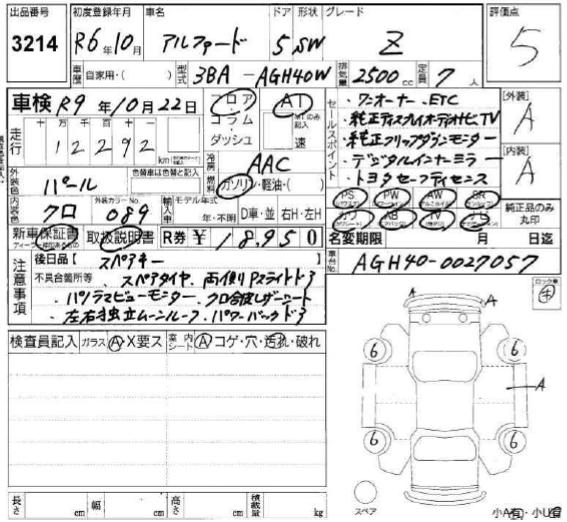 出品番号 初度登録年月 車名 ドア 形状 グレード 評価点
3214 R6年10月 アルファード 5 SW Z 5
車歴 自家用・( ) 型式 3BA-AGH40W 排気量 2500cc 定員 7人
車検 R9年10月22日 フロア AT
コラム
ダッシュ 速
走行 十万千百十一
12292 km
セールスポイント
・ワンオーナー、ETC
・純正ディスプレイオーディオナビTV
・純正フリップダウンモニター
・デジタルインナーミラー
・トヨタセーフティセンス
[外装] A
[内装] A
冷房 AAC
燃料 ガソリン・軽油・( )
外装色 パール 色替車は色替と記入
内装色 クロ 外装カラーNo. 089
輸入車 モデル年式 年・不明 D車・並 右H・左H
PS PW AW SR
AB TV
純正品のみ丸印
新車保証書 取扱説明書 R券 ¥18,950
名変期限 月 日迄
車台No. AGH40-0027057
注意事項
後日品[ スペアキー ]
不具合箇所等 ・スペアタイヤ、両側Pスライドドア
・パノラマビューモニター、クロ合成レザーシート
・左右独立ムーンルーフ、パワーバックドア
検査員記入 ガラス A・X要ス 室内シート A コゲ・穴・汚れ・破れ
A A
6 6
A
6 6
スペア
長さ cm 幅 cm 高さ cm 積載量 kg
小A有・小U有